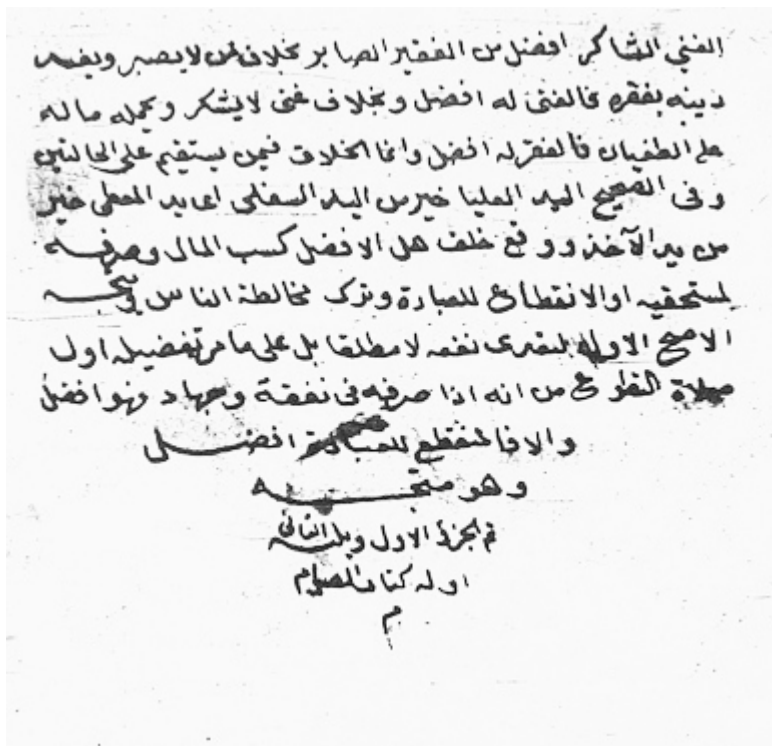 الغني الشاكر افضل من الفقير الصابر بخلاف من لا يصبر ويفسد
دينه بفقره فالغنى له افضل وبخلاف غنى لا يشكر ويحمله ماله
على الطغيان فالفقر له افضل وانما الخلاف فيمن يستقيم على الحالتين
وفى الصحيح اليد العليا خير من اليد السفلى اى يد المعطى خير
من يد الآخذ ووقع خلف هل الافضل كسب المال وصرفه
لمستحقيه او الانقطاع للعبادة وترك مخالطة الناس ويتجه
الاصح الاول لتعدى نفعه لا مطلقا بل على ما مر تفصيله اول
صلاة التطوع من انه اذا صرفه فى نفقة وجهاد فهو افضل
والا فالمنقطع للعبادة افضل
وهو متجه
تم الجزء الاول ويليه الثانى
اوله كتاب الصيام
م